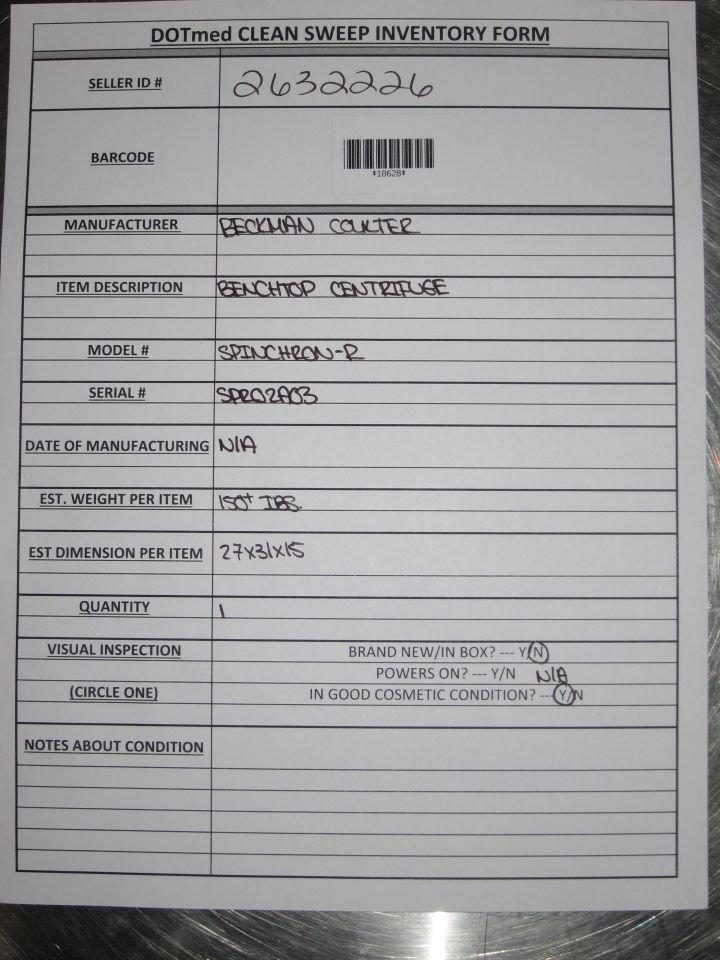 DOTmed CLEAN SWEEP INVENTORY FORM
SELLER ID # 2632226
BARCODE
*18628*
MANUFACTURER BECKMAN COULTER
ITEM DESCRIPTION BENCHTOP CENTRIFUGE
MODEL # SPINCHRON-R
SERIAL # SPR02A03
DATE OF MANUFACTURING N/A
EST. WEIGHT PER ITEM 150+ IBS.
EST DIMENSION PER ITEM 27X31X15
QUANTITY 1
VISUAL INSPECTION BRAND NEW/IN BOX? --- Y/N
POWERS ON? --- Y/N N/A
(CIRCLE ONE) IN GOOD COSMETIC CONDITION? --- Y/N
NOTES ABOUT CONDITION